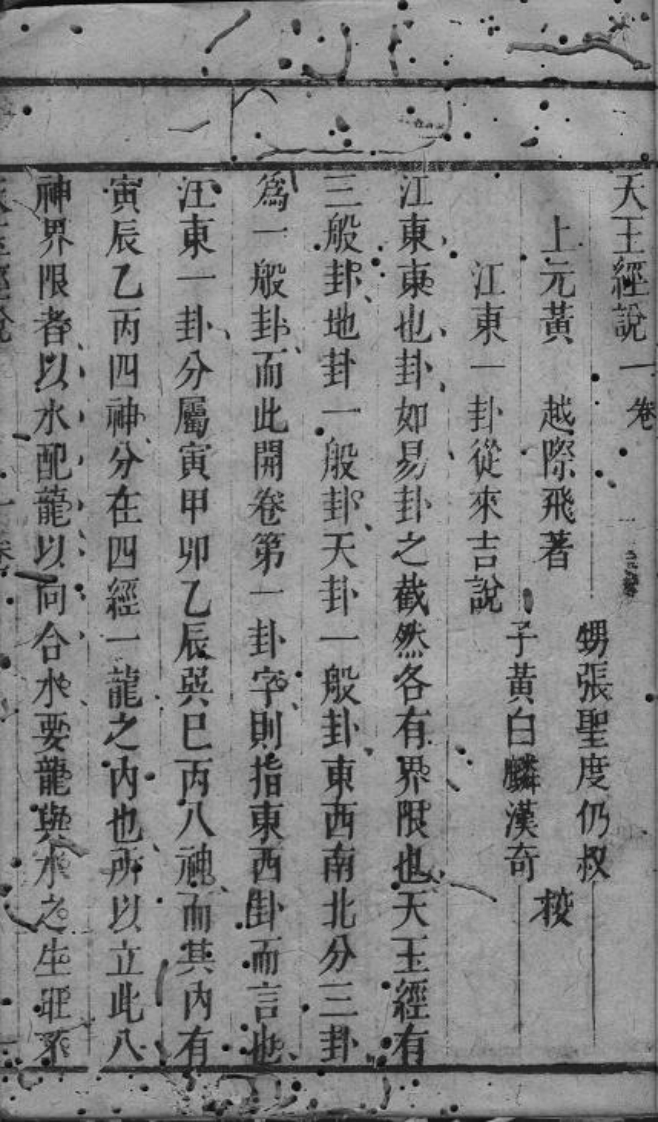 天王經說一卷
上元黃　越際飛著　甥張聖度仍叔
子黃白麟漢奇　校
江東一卦從來吉說
江東東也卦如易卦之截然各有界限也天玉經有
三般卦地卦一般卦天卦一般卦東西南北分三卦
爲一般卦而此開卷第一卦字則指東西卦而言也
江東一卦分屬寅甲卯乙辰巽巳丙八神而其內有
寅辰乙丙四神分在四經一龍之內也所以立此八
神界限者以水配龍以向合水要龍與水之生旺不
經說